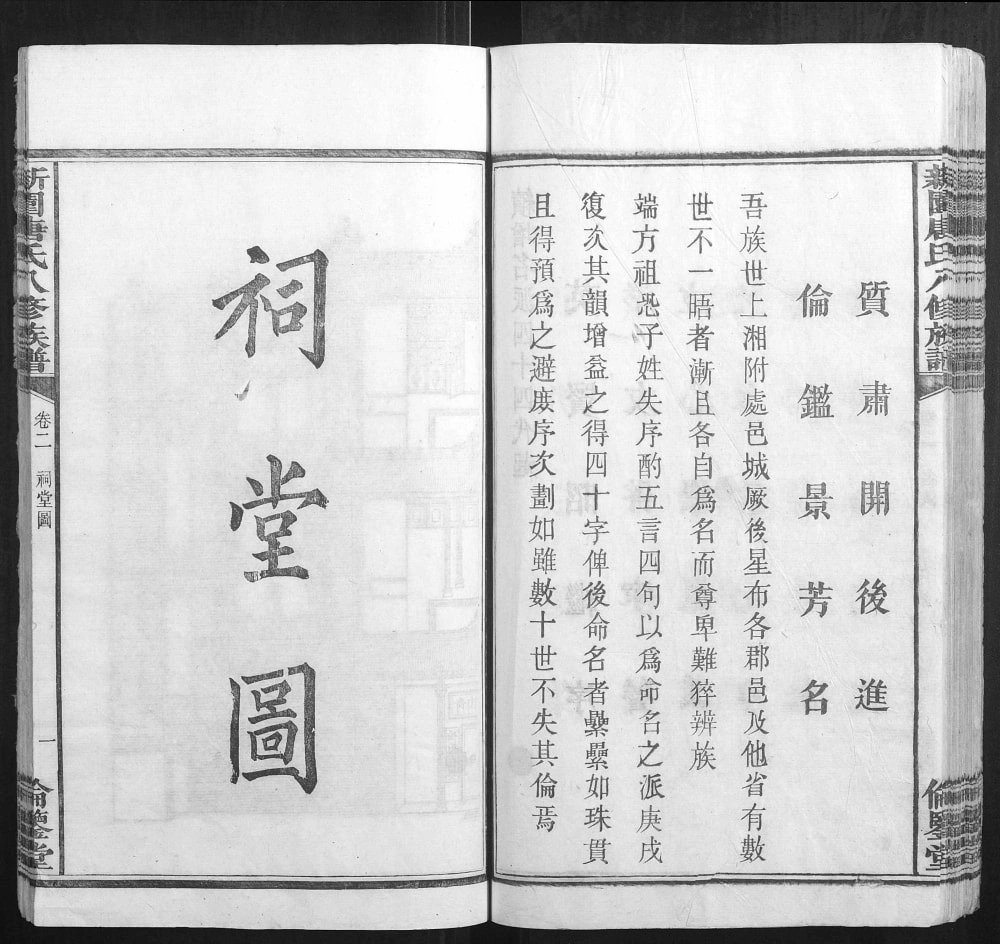 新圍唐氏八修族譜
質肅開後進
倫鑑景芳名
吾族世上湘附處邑城厥後星布各郡邑及他省有數
世不一晤者漸且各自爲名而尊卑難猝辨族
端方祖恐子姓失序酌五言四句以爲命名之派庚戌
復次其韻增益之得四十字俾後命名者纍纍如珠貫
且得預爲之避庶序次劃如雖數十世不失其倫焉
倫鑒堂
祠堂圖
新圍唐氏八修族譜
卷二
祠堂圖
一
倫鑒堂